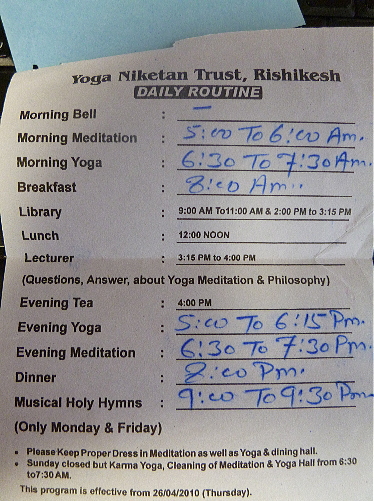 Yoga Niketan Trust, Rishikesh
DAILY ROUTINE
Morning Bell : —
Morning Meditation : 5:00 To 6:00 Am.
Morning Yoga : 6:30 To 7:30 Am.
Breakfast : 8:00 Am..
Library : 9:00 AM To11:00 AM & 2:00 PM to 3:15 PM
Lunch : 12:00 NOON
Lecturer : 3:15 PM to 4:00 PM
(Questions, Answer, about Yoga Meditation & Philosophy)
Evening Tea : 4:00 PM
Evening Yoga : 5:00 To 6:15 Pm.
Evening Meditation : 6:30 To 7:30 Pm.
Dinner : 8:00 Pm.
Musical Holy Hymns : 9:00 To 9:30 Pm
(Only Monday & Friday)
• Please Keep Proper Dress in Meditation as well as Yoga & dining hall.
• Sunday closed but Karma Yoga, Cleaning of Meditation & Yoga Hall from 6:30
to7:30 AM.
This program is effective from 26/04/2010 (Thursday).